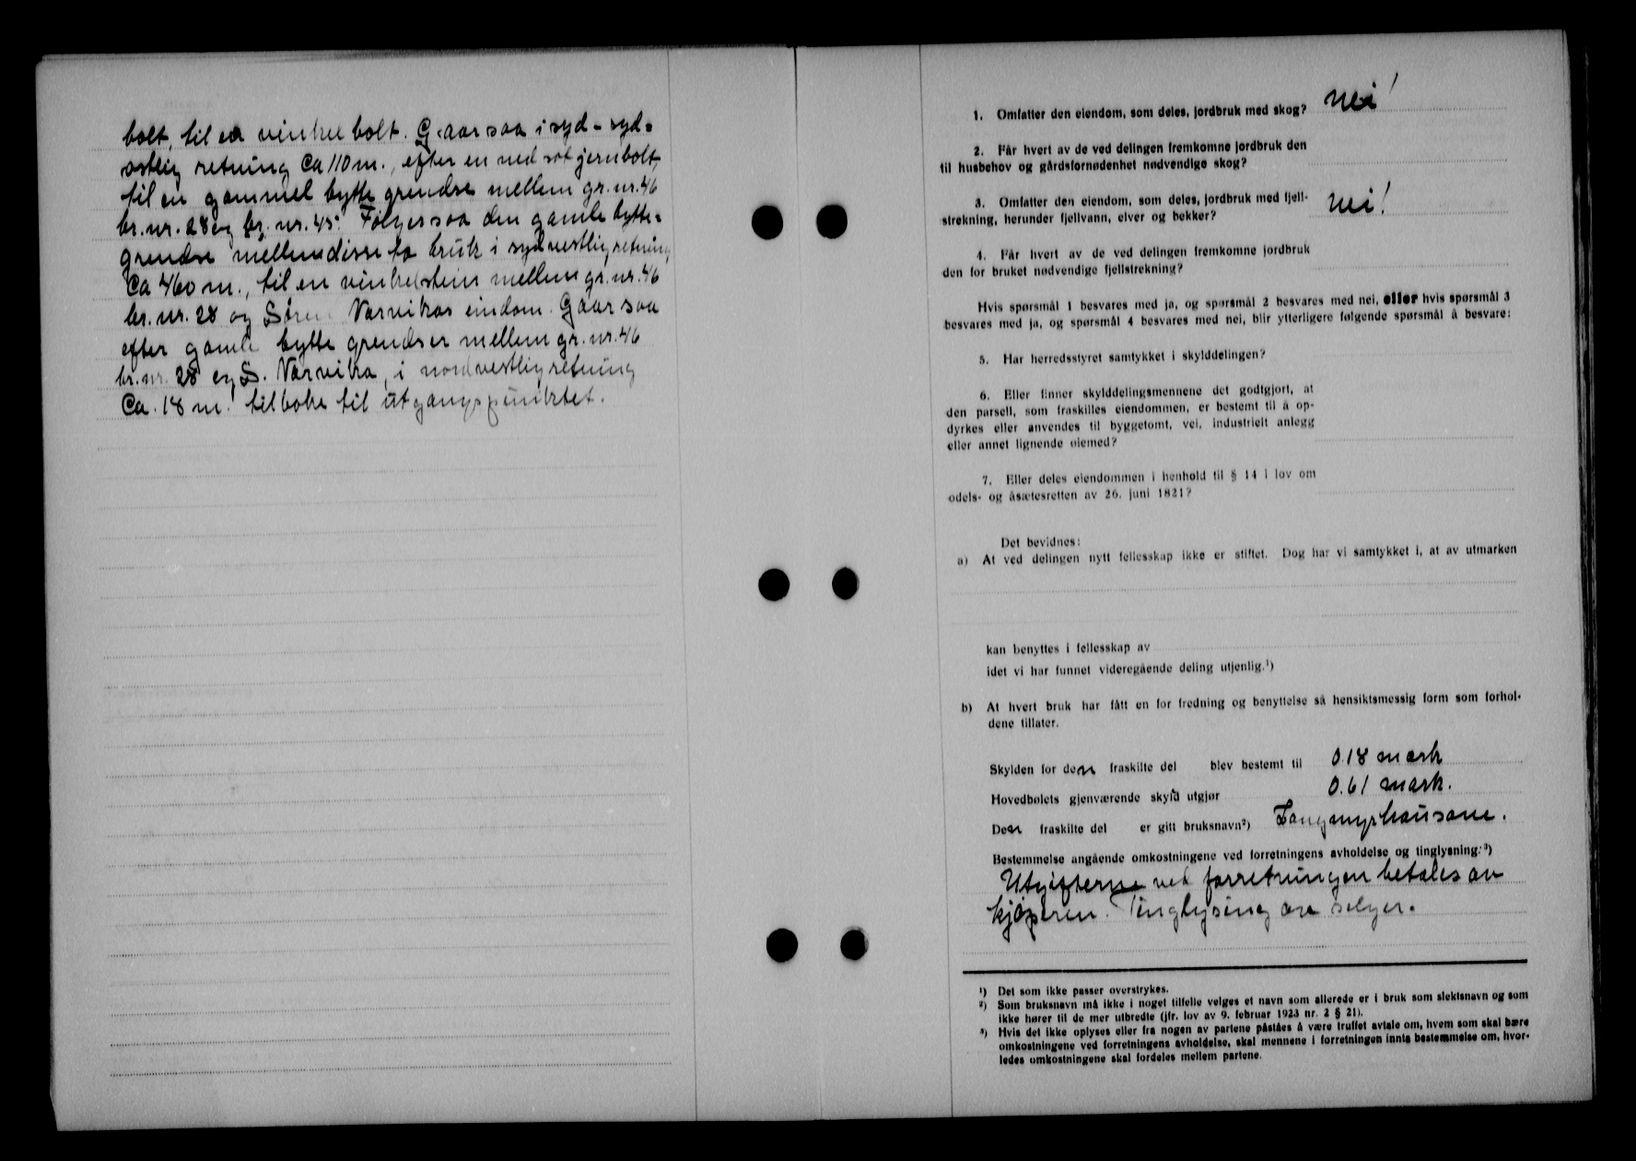 bolt, til en vinkelbolt. Gaar saa i syd-syd-
ostlig retning Ca 110 m., efter en ned sat jernbolt,
til en gammel bytte grendse mellem gr. nr. 46
br. nr. 28 og br. nr. 45. Følges saa den gamle bytte-
grendse mellem disse to bruk i sydvestlig retning
Ca 460 m., til en vinkelstein mellem gr. nr. 46
br. nr. 28 og Søren Varvikas eindom. Gaar saa
efter gamle bytte grendser mellem gr. nr. 46
br. nr. 28 og S. Varvika, i nordvestlig retning
Ca. 18 m. tilbake til utgangspunktet.
1. Omfatter den eiendom, som deles, jordbruk med skog? nei!
2. Får hvert av de ved delingen fremkomne jordbruk den
til husbehov og gårdsfornødenhet nødvendige skog?
3. Omfatter den eiendom, som deles, jordbruk med fjell-
strekning, herunder fjellvann, elver og bekker? nei!
4. Får hvert av de ved delingen fremkomne jordbruk
den for bruket nødvendige fjellstrekning?
Hvis spørsmål 1 besvares med ja, og spørsmål 2 besvares med nei, eller hvis spørsmål 3
besvares med ja, og spørsmål 4 besvares med nei, blir ytterligere følgende spørsmål å besvare:
5. Har herredsstyret samtykket i skylddelingen?
6. Eller finner skylddelingsmennene det godtgjort, at
den parsell, som fraskilles eiendommen, er bestemt til å op-
dyrkes eller anvendes til byggetomt, vei, industrielt anlegg
eller annet lignende øiemed?
7. Eller deles eiendommen i henhold til § 14 i lov om
odels- og åsætesretten av 26. juni 1821?
Det bevidnes:
a) At ved delingen nytt fellesskap ikke er stiftet. Dog har vi samtykket i, at av utmarken
kan benyttes i fellesskap av
idet vi har funnet videregående deling utjenlig.¹)
b) At hvert bruk har fått en for fredning og benyttelse så hensiktsmessig form som forhol-
dene tillater.
Skylden for den fraskilte del blev bestemt til 0.18 mark
Hovedbølets gjenværende skyld utgjør 0.61 mark.
Den fraskilte del er gitt bruksnavn²) Langmyrhausane.
Bestemmelse angående omkostningene ved forretningens avholdelse og tinglysning:³)
Utgifterne ved forretningen betales av
kjøperen. Tinglysing av selger.
¹) Det som ikke passer overstrykes.
²) Som bruksnavn må ikke i noget tilfelle velges et navn som allerede er i bruk som slektsnavn og som
ikke hører til de mer utbredte (jfr. lov av 9. februar 1923 nr. 2 § 21).
³) Hvis det ikke oplyses eller fra nogen av partene påståes å være truffet avtale om, hvem som skal bære
omkostningene ved forretningens avholdelse, skal mennene i forretningen innta bestemmelse om, hvor-
ledes omkostningene skal fordeles mellem partene.